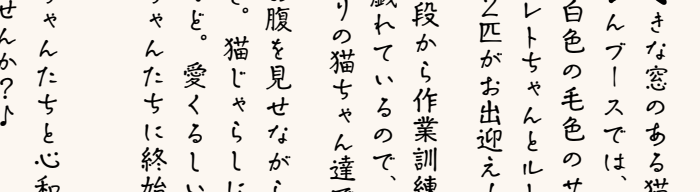 きな窓のある猫
んブースでは、
白色の毛色のサ
レトちゃんとルー
2匹がお出迎え
段から作業訓練
戯れているので、
りの猫ちゃん達で
お腹を見せながら
。猫じゃらしに
ど。愛くるしい
ゃんたちに終始
ゃんたちと心和
せんか?♪